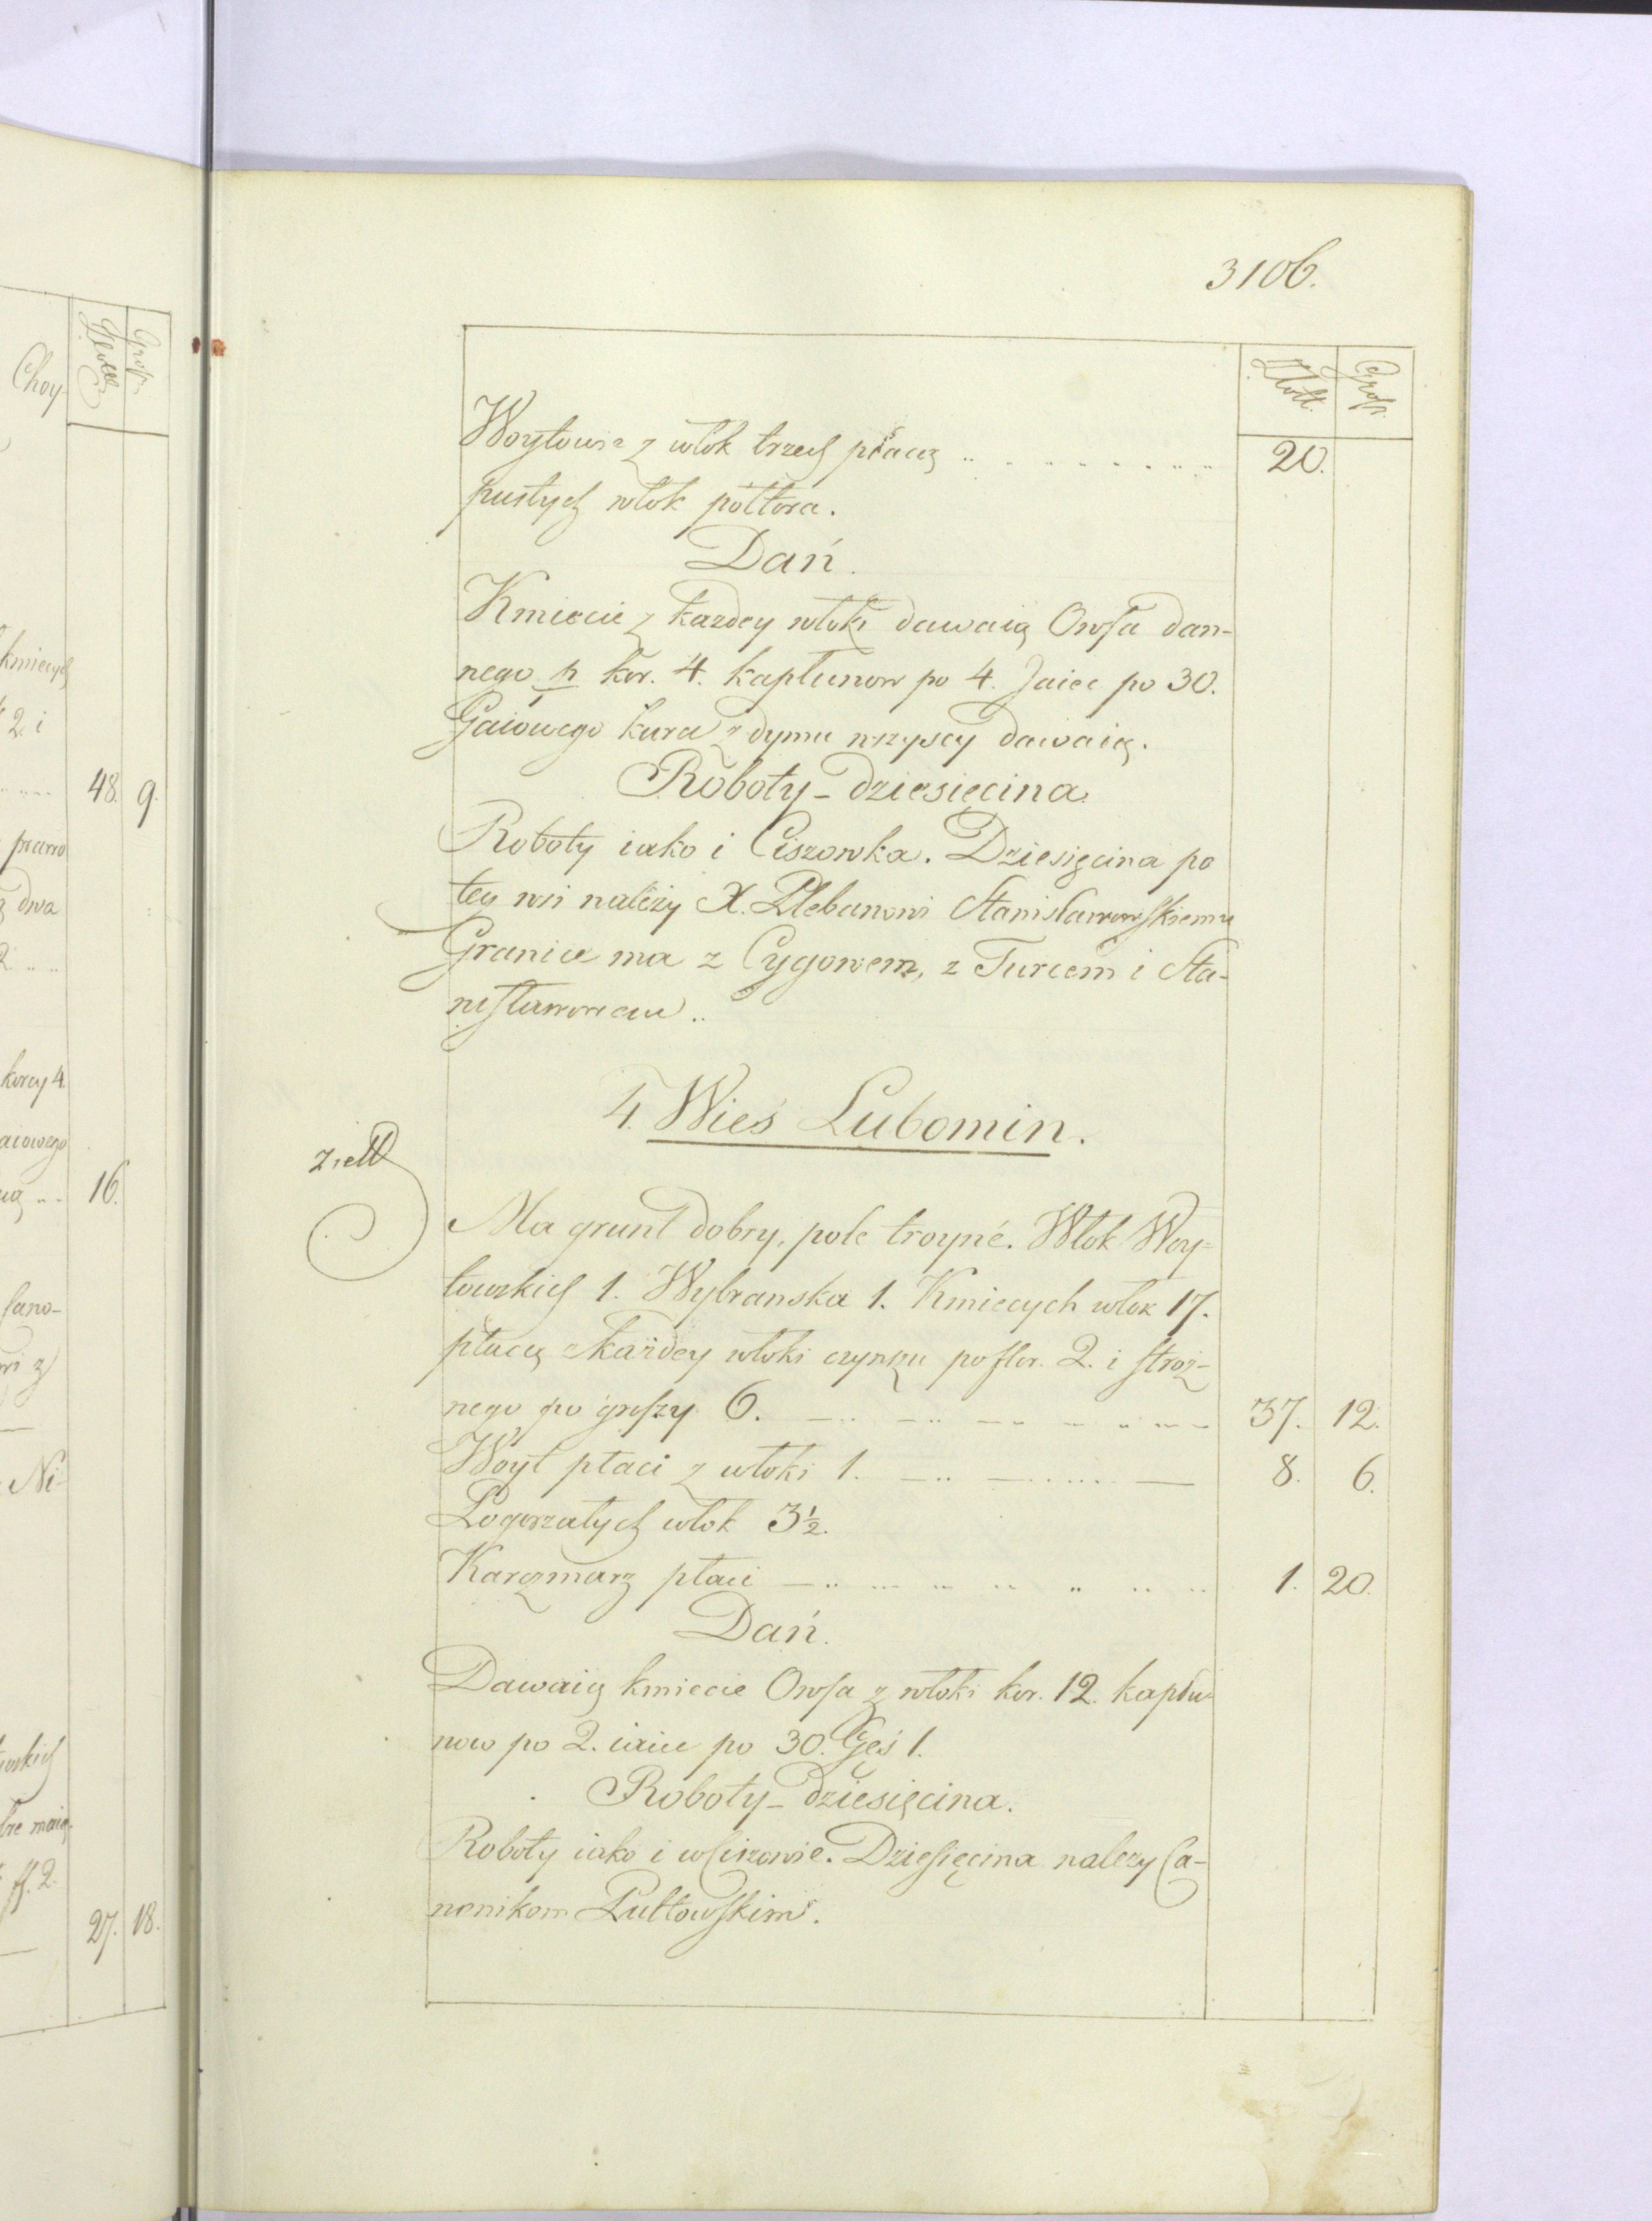 3106.
Złott. Grosz.
Woytowie z włok trzech płacą .. .. .. .. 20.
pustych włok półtora.
Dań.
Kmiecie z każdey włoki dawaią Owsa dan-
nego p kor. 4. kapłunow po 4. Jaiec po 30.
Gaiowego kura z dymu wszyscy dawaią.
Roboty - dziesięcina.
Roboty iako i Ciszowka. Dziesięcina po
tey wsi należy X. Plebanowi Stanisławowskiemu
Granice ma z Cygowem, z Turcem i Sta-
nisławowem ..
4. Wieś Lubomin.
Ma grunt dobry, pole troyne. Włok Woy-
towskich 1. Wybranska 1. Kmiecych włok 17.
płacą z każdey włoki czynszu po flor. 2. i stroż-
nego po groszy 6. — .. — .. 37. 12.
Woyt płaci z włoki 1. — .. — .... — 8. 6.
Pogorzałych włok 3½.
Karczmarz płaci — .. .. .. .. 1. 20.
Dań.
Dawaią kmiecie Owsa z włoki kor. 12. kapłu-
now po 2. iaiec po 30. Gęś 1.
Roboty - dziesięcina.
Roboty iako i w Ciszowie. Dziesięcina należy Ca-
nonikom Pułtowskim.
Choy-
Złott Grosz
kmiecych
2. i
48. 9.
prawo
dwa
korcy 4.
aiowego
16.
Ni-
27. 18.